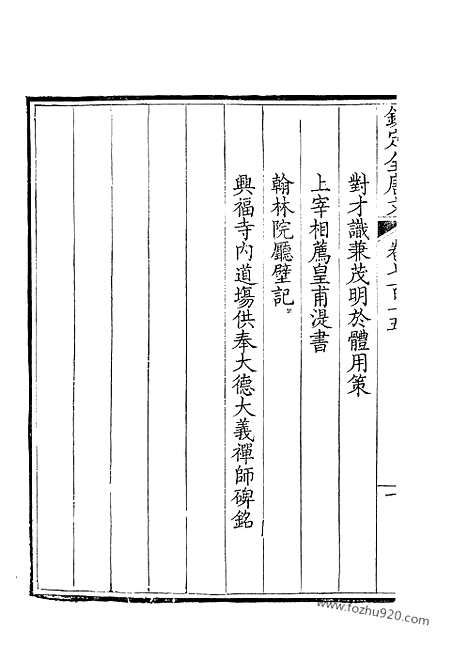 欽定全唐文 卷七百十五 一
對才識兼茂明於體用策
上宰相薦皇甫湜書
翰林院廳壁記
興福寺內道場供奉大德大義禪師碑銘
www.fozhu920.com